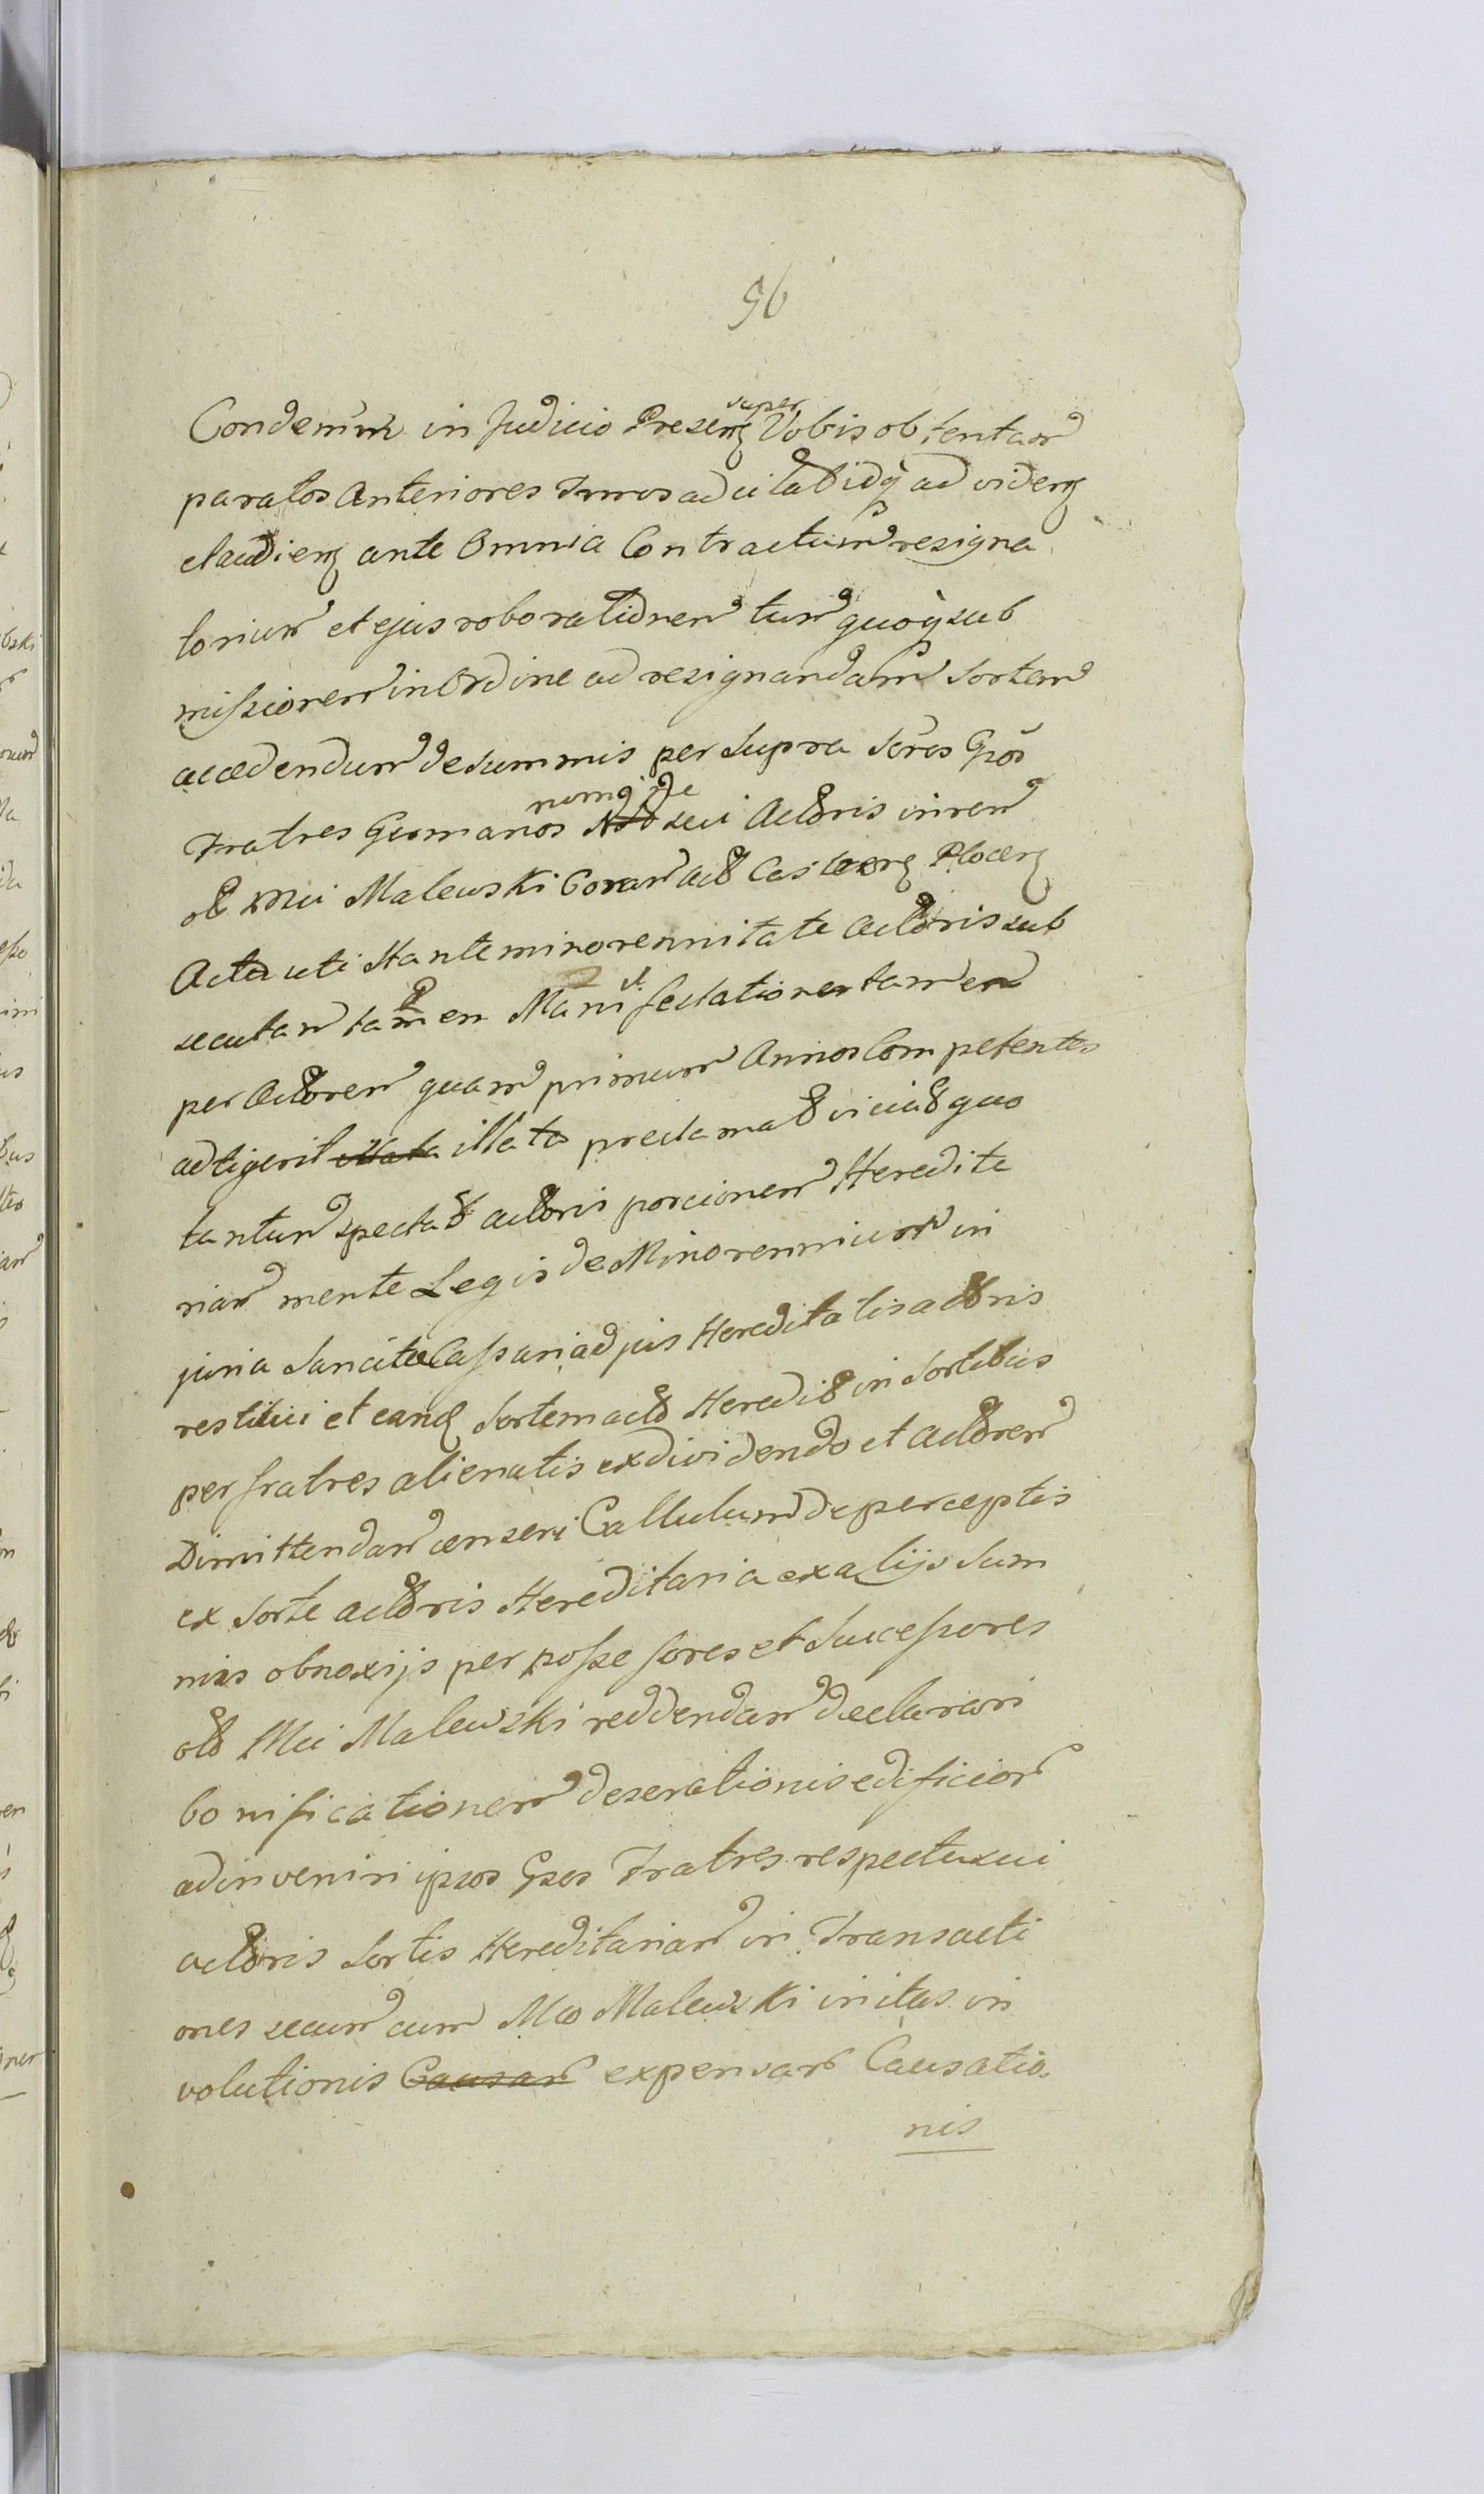 56
Condemnn in Judicio Presen super Vobis obtentam
paratos anteriores Tnros adcitat idq ad viden
et audien ante Omnia Contractum resigna
torium et ejus roborationem tum quoq sub
missionem in Ordine ad resignandam Sortem
accedendum de summis per Supra Scros Gsos
Fratres Germanos nomine de sui Actoris initem
olb Mci Malewski Coram act Castren Plocen
Acta uti Stante minorennitate actoris sub
secutam tamen Manifestationes tamen
per Actorem quam primum Annos Competentes
adtigerit illata illata preclamat viciat quo
tantum spectat actoris porcionem Heredita
riam mente Legis de Minorennium in
juria Sancita Cassari ad jus Hereditatis actoris
restitui et eand Sortem actd Heredit in Sortibus
per fratres alienatis exdividendo et Actorem
Dimittendam censeri Callulum de perceptis
ex Sorte actoris Hereditaria ex alijs Sum
mis obnoxijs per possessores et Successores
olb Mci Malewski reddendam declarari
bonificationem deserationis edificiorum
adinveniri ipsos Gsos Fratres respectu sui
actoris Sortis Hereditariam in Transacti
ones secum cum Mco Malewski initas in
volutionis Causam expensarum Causatio-
nis